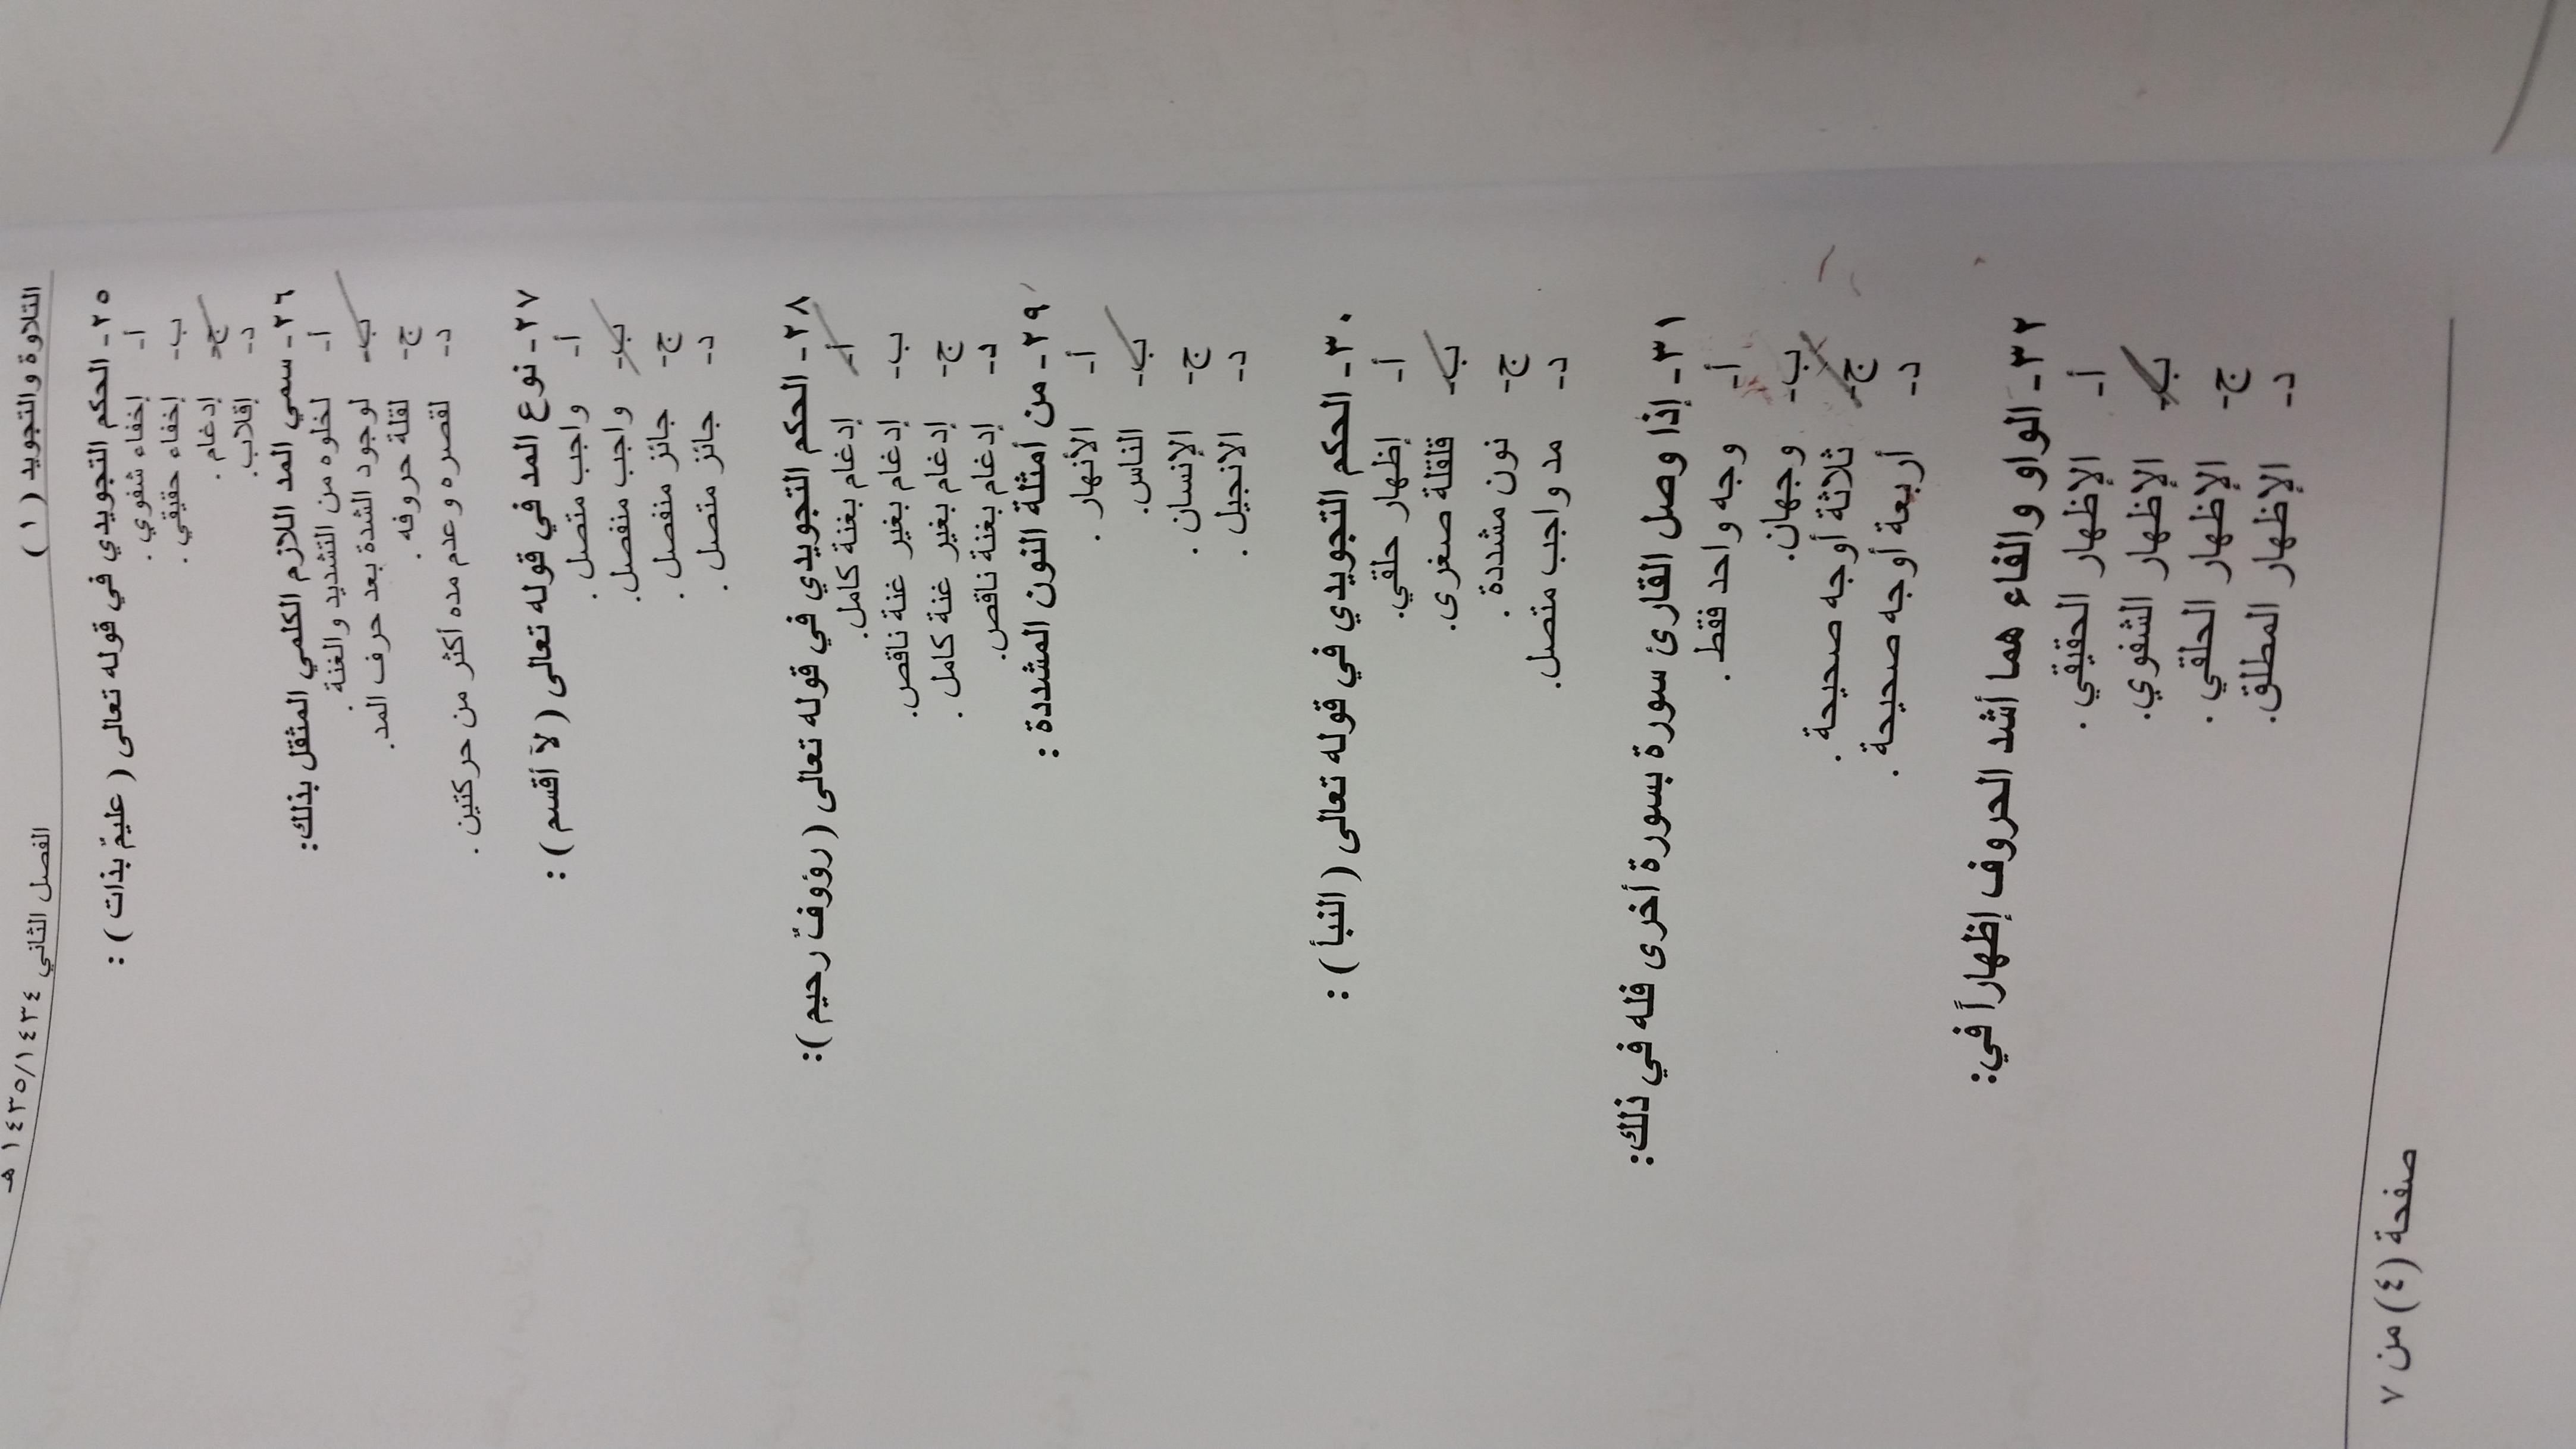 التلاوة والتجويد ( ١ ) الفصل الثاني ١٤٣٥/١٤٣٤ هـ
٢٥- الحكم التجويدي في قوله تعالى ( عليمٌ بذات ) :
أ- إخفاء شفوي .
ب- إخفاء حقيقي .
ج- إدغام .
د- إقلاب.
٢٦- سمي المد اللازم الكلمي المثقل بذلك:
أ- لخلوه من التشديد والغنة .
ب- لوجود الشدة بعد حرف المد.
ج- لقلة حروفه .
د- لقصره وعدم مده أكثر من حركتين .
٢٧- نوع المد في قوله تعالى ( لآ أقسم ) :
أ- واجب متصل .
ب- واجب منفصل.
ج- جائز منفصل .
د- جائز متصل .
٢٨- الحكم التجويدي في قوله تعالى ( رؤوفٌ رحيم ):
أ- إدغام بغنة كامل.
ب- إدغام بغير غنة ناقص.
ج- إدغام بغير غنة كامل .
د- إدغام بغنة ناقص.
٢٩- من أمثلة النون المشددة :
أ- الأنهار .
ب- الناس.
ج- الإنسان .
د- الانجيل .
٣٠- الحكم التجويدي في قوله تعالى ( النبأ ) :
أ- إظهار حلقي.
ب- قلقلة صغرى.
ج- نون مشددة .
د- مد واجب متصل.
٣١- إذا وصل القارئ سورة بسورة أخرى فله في ذلك:
أ- وجه واحد فقط .
ب- وجهان.
ج- ثلاثة أوجه صحيحة .
د- أربعة أوجه صحيحة .
٣٢- الواو والفاء هما أشد الحروف إظهاراً في:
أ- الإظهار الحقيقي .
ب- الإظهار الشفوي.
ج- الإظهار الحلقي .
د- الإظهار المطلق.
صفحة ( ٤ ) من ٧